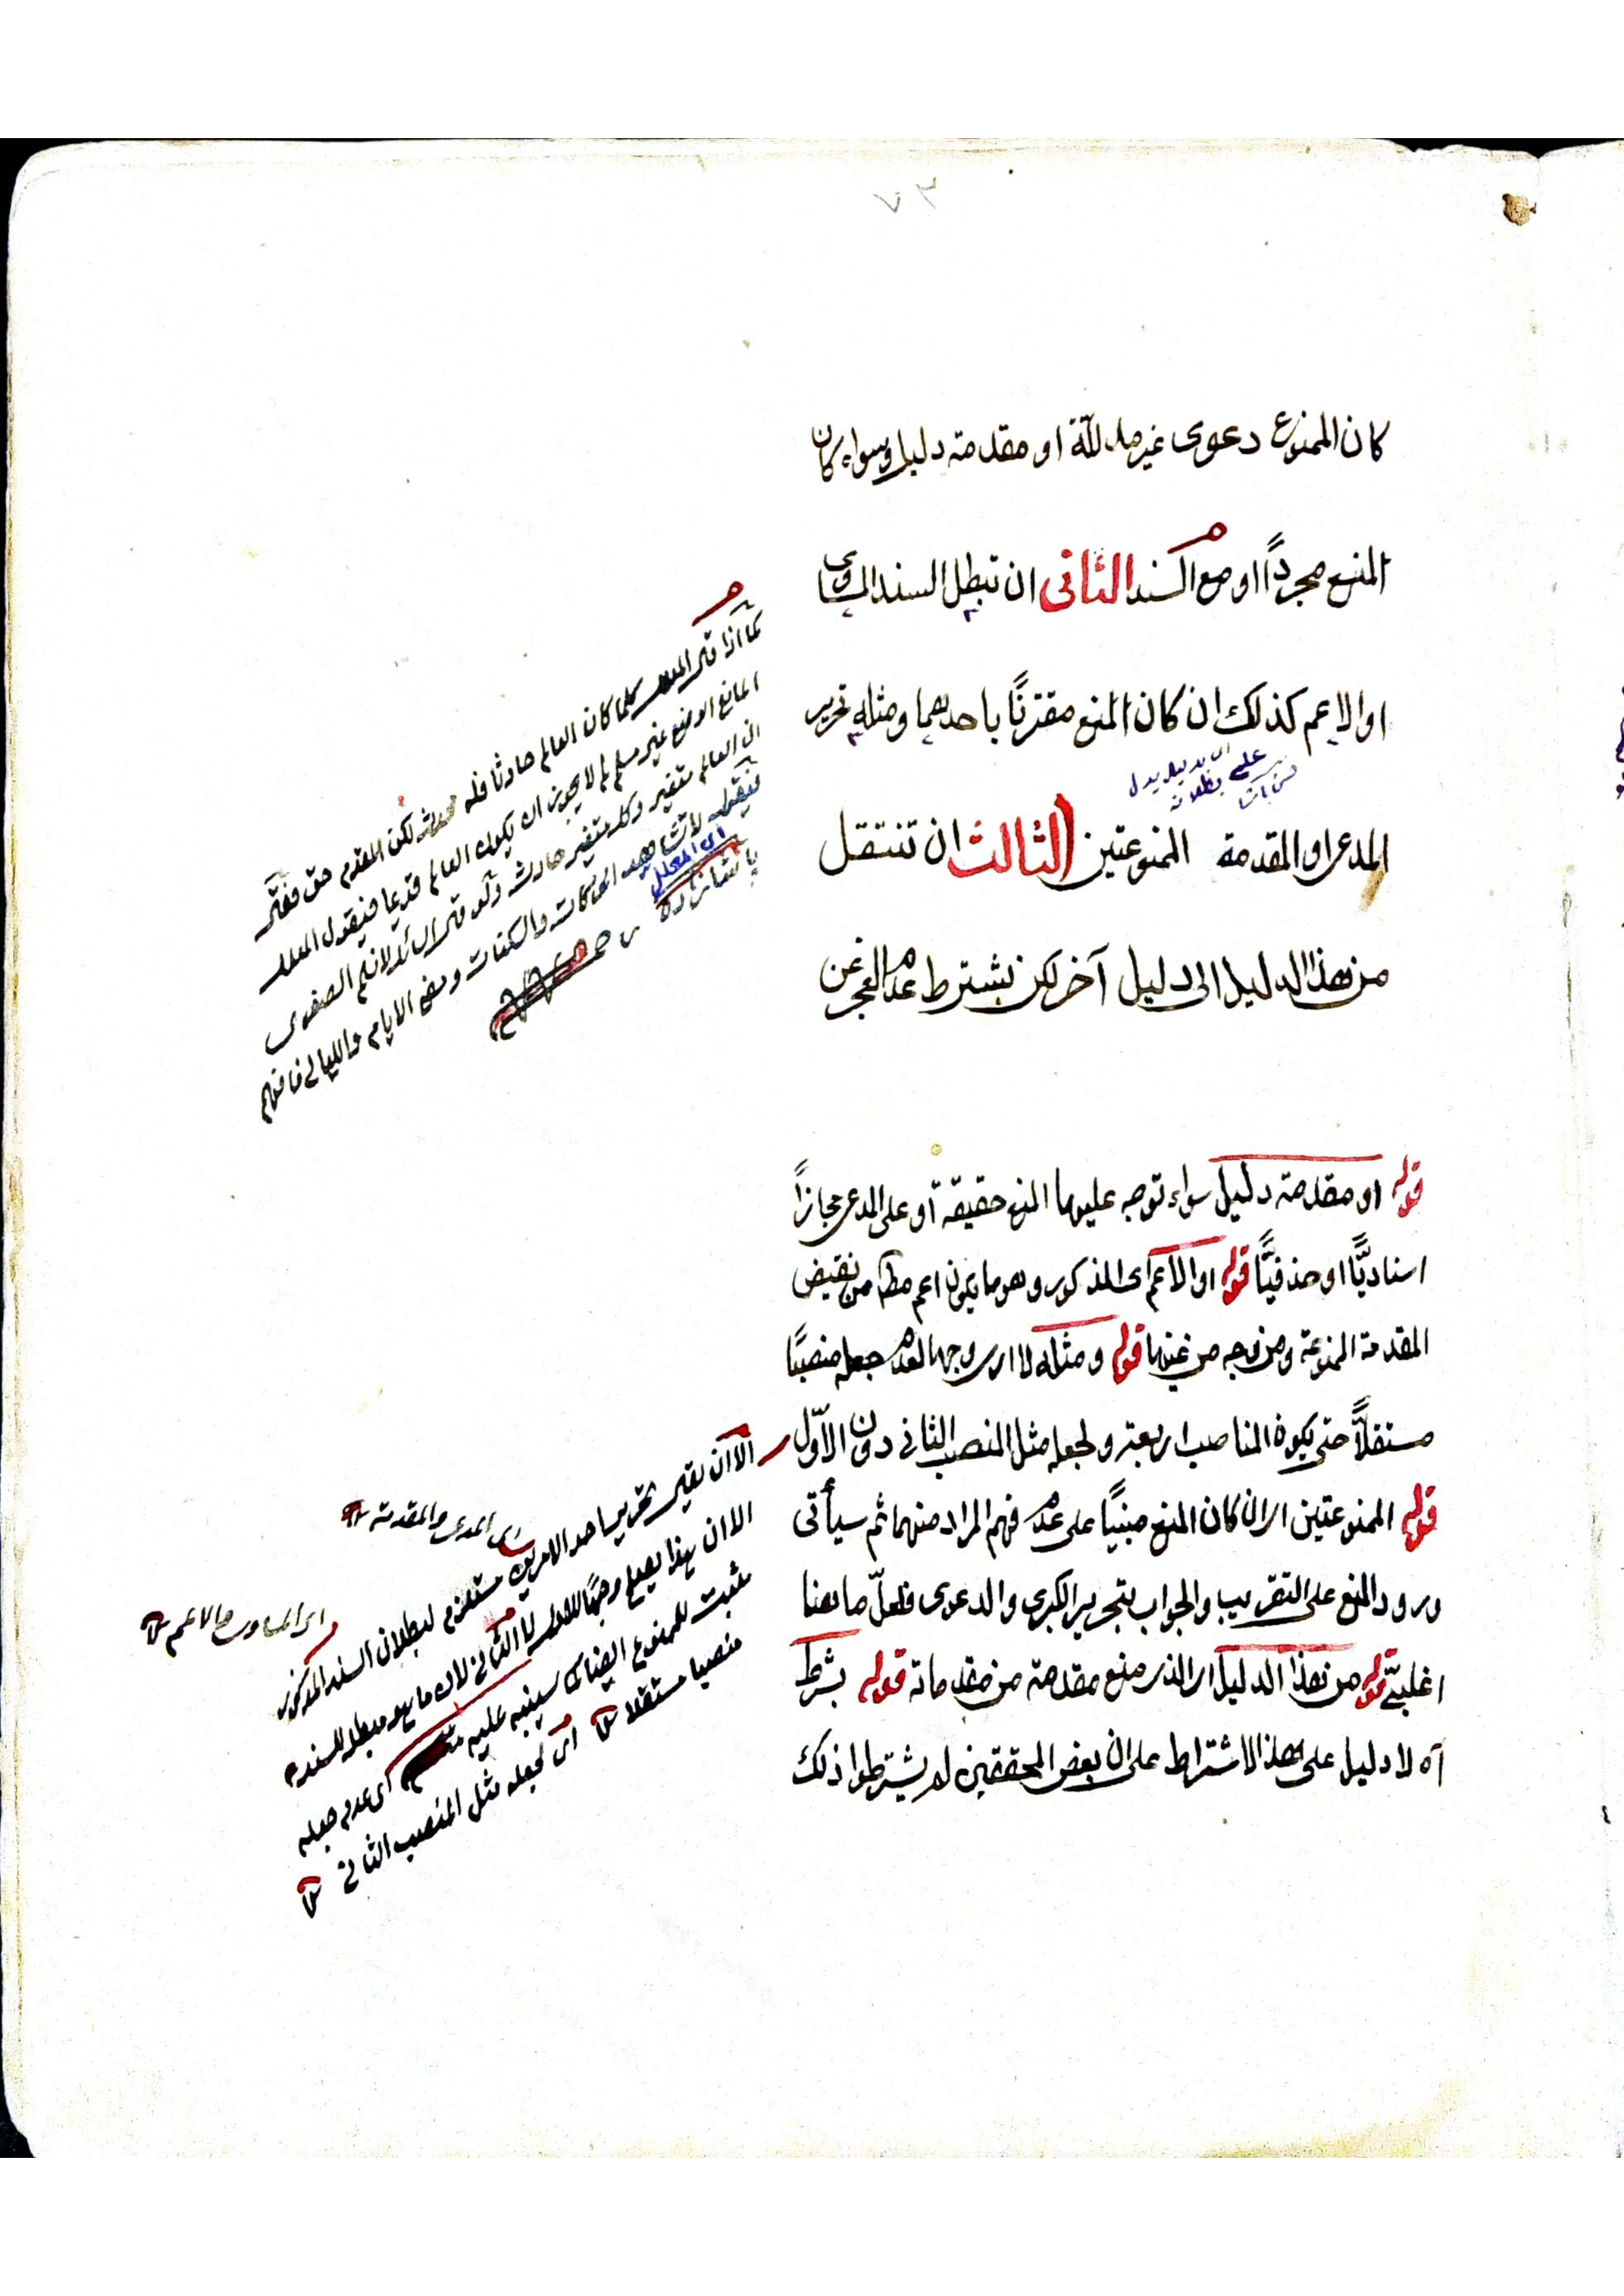 ٧٣
كان الممنوع دعوى غير مدللّة او مقدمة دليل وسواء كان
المنع مجرداً او مع السند الثانى ان تبطل السند المساوى
او الاعم كذلك ان كان المنع مقترنًا باحدهما ومثله تحرير
المدعى او المقدمة الممنوعتين الثالث ان تنتقل
من هذا الدليل الى دليل آخر لكن بشترط عدم العجز عن
كما اذا قال المعلل كلما كان العالم حادثا فله محدث لكن المقدم حق فقال
المانع الوضع غير مسلم لم لا يجوز ان يكون العالم قديما فيقول المعلل
ان العالم متغير وكل متغير حادث ولو قال السائل لا نسلم الصغرى
فيقول لا نشاهد الحركات والسكنات ومضى الايام والليالى فافهم
اى المعلل
قوله او مقدمة دليل سواء توجه عليها المنع حقيقة او على المدعى مجازاً
اسناديًّا او حذفيًّا قوله او الاعم اى المذكور وهو ما يكون اعم مطم من نقيض
المقدمة الممنوعة ومن وجه من عينها قوله ومثله لا ارى وجها لعدم جعله منصبًا
مستقلاًّ حتى يكون المناصب اربعة ولجعله مثل المنصب الثانى دون الاوّل
قوله الممنوعتين اى ان كان المنع مبنيًا على عدم فهم المراد منهما ثم سيأتى
ورود المنع على التقريب والجواب بتحرير الكبرى والدعوى فلعلّ ما هنا
اغلبىّ قوله من هذا الدليل اى الذى منع مقدمة من مقدماته قوله بشرط
آه لا دليل على هذا الاشتراط على ان بعض المحققين لم يشترطوا ذلك
الا ان يقال تحرير احد الامرين مستلزم لبطلان السند المذكور
اى المدعى والمقدمة
اى المساوى والاعم
الا ان هذا يصلح وجهًا للاول لا الثانى لان ما هو مبطل للسند
مثبت للممنوع ايضا كما سينبه عليه اى عدم جعله
منصبا مستقلا اى لجعله مثل المنصب الثانى